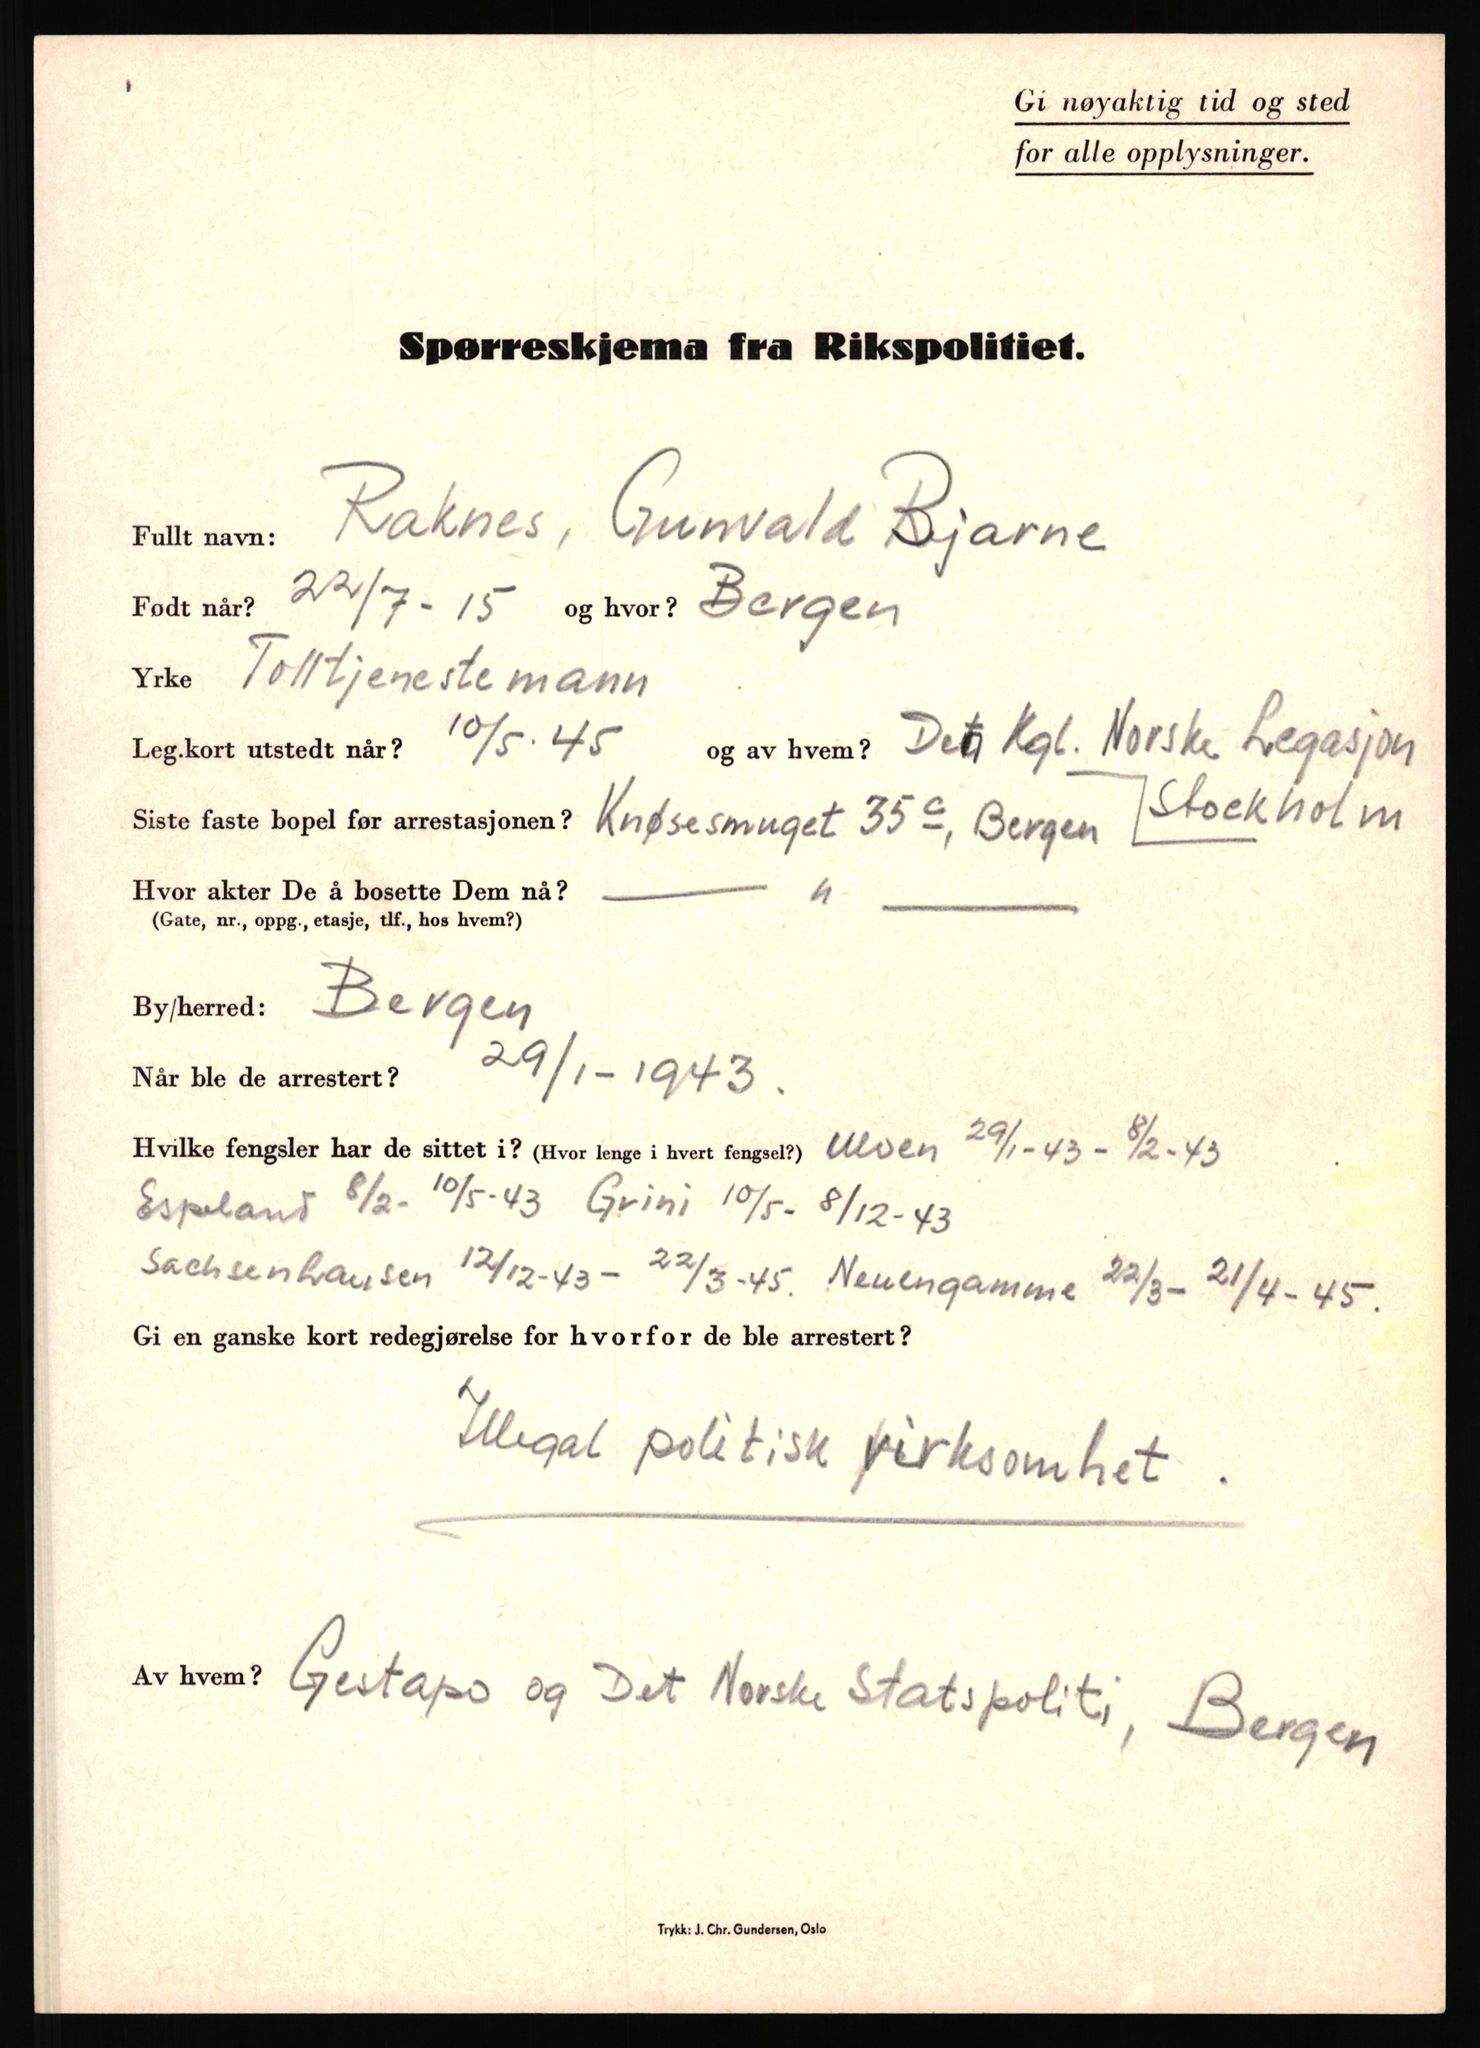 Gi nøyaktig tid og sted
for alle opplysninger.
Spørreskjema fra Rikspolitiet.
Fullt navn: Raknes, Gunvald Bjarne
Født når? 22/7 - 15 og hvor? Bergen
Yrke Tolltjenestemann
Leg.kort utstedt når? 10/5. 45 og av hvem? Det Kgl. Norske Legasjon
Stockholm
Siste faste bopel før arrestasjonen? Knøsesmuget 35c, Bergen
Hvor akter De å bosette Dem nå? — " —
(Gate, nr., oppg., etasje, tlf., hos hvem?)
By/herred: Bergen
Når ble de arrestert? 29/1 - 1943.
Hvilke fengsler har de sittet i? (Hvor lenge i hvert fengsel?) Ulven 29/1-43 - 8/2-43
Espeland 8/2- 10/5-43 Grini 10/5- 8/12-43
Sachsenhausen 12/12-43 - 22/3-45. Neuengamme 22/3- 21/4-45.
Gi en ganske kort redegjørelse for hvorfor de ble arrestert?
Illegal politisk virksomhet.
Av hvem? Gestapo og Det Norske Statspoliti, Bergen
Trykk: J. Chr. Gundersen, Oslo